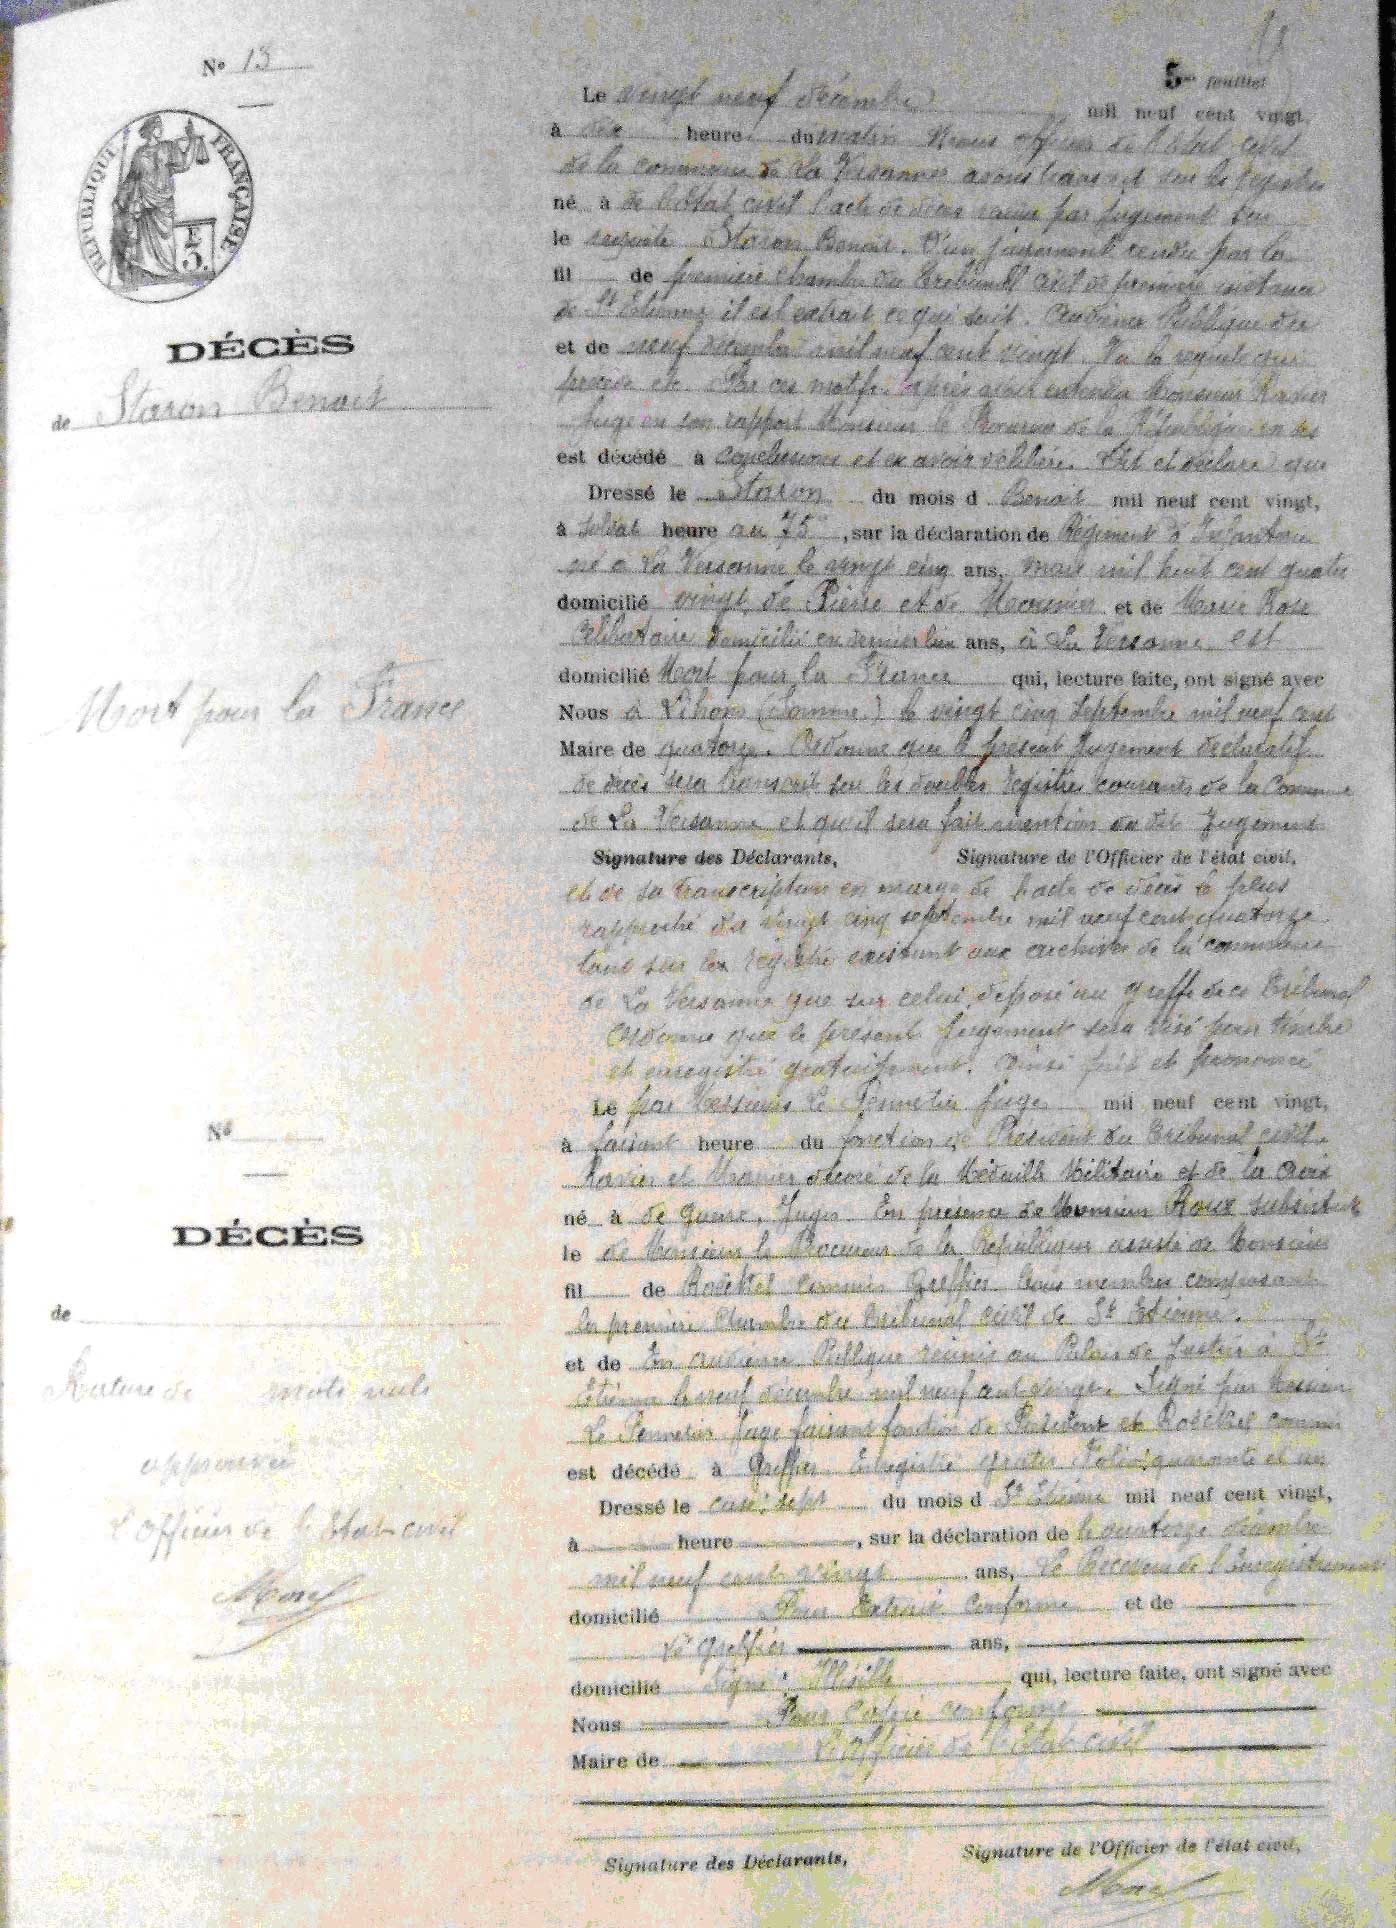 Nº 13
5me feuillet
RÉPUBLIQUE FRANÇAISE
DÉCÈS
de Staron Benoit
Mort pour la France
Le vingt neuf décembre mil neuf cent vingt,
à dix heure du matin Nous officier de l'état civil
de la commune de La Versanne avons transcrit sur les registres
né à de l'état civil l'acte de décès rendu par jugement sur
le requête Staron Benoit. D'un jugement rendu par la
fil de première chambre du tribunal civil de première instance
de St Etienne il est extrait ce qui suit. Audience Publique du
et de neuf décembre mil neuf cent vingt. Vu la requête qui
précède etc. Par ces motifs. après avoir entendu Monsieur Ravier
Juge en son rapport Monsieur le Procureur de la République en ses
est décédé à conclusions et en avoir délibéré. Dit et déclare que
Dressé le Staron du mois d Benoit mil neuf cent vingt,
à soldat heure au 75e, sur la déclaration de Régiment d'Infanterie
né à La Versanne le vingt cinq ans, mars mil huit cent quatre
domicilié vingt, de Pierre et de Meunier et de Marie Rose
célibataire domicilié en dernier lieu ans, à La Versanne est
domicilié Mort pour la France qui, lecture faite, ont signé avec
Nous à Lihons (Somme) le vingt cinq septembre mil neuf cent
Maire de quatorze. Ordonne que le présent jugement déclaratif
de décès sera transcrit sur les doubles registres courants de la Commune
de La Versanne et qu'il sera fait mention du dit Jugement
Signature des Déclarants, Signature de l'Officier de l'état civil,
et de sa transcription en marge de l'acte de décès le plus
rapproché du vingt cinq septembre mil neuf cent quatorze
tant sur les registre existant aux archives de la commune
de La Versanne que sur celui déposé au greffe de ce Tribunal
Ordonne que le présent jugement sera visé pour timbre
et enregistré gratuitement. Ainsi fait et prononcé
Nº
DÉCÈS
de
Rature de mots nuls
approuvé
L'officier de l'Etat-civil
Morel
Le par Messieurs Le Pennetier juge mil neuf cent vingt,
à faisant heure du fonction de Président du Tribunal civil.
Ravier et décoré de la Médaille Militaire et de la croix
né à de guerre, Juges. En présence de Monsieur Roux substitut
le de Monsieur le Procureur de la République assisté de Monsieur
fil de Roëckel commis Greffier. tous membres composant
la première Chambre du tribunal civil de St Etienne.
et de En audience Publique réunis au Palais de Justice à St
Etienne le neuf décembre mil neuf cent vingt. Signé par Messieurs
Le Pennetier Juge faisant fonction de Président et Roëckel commis
est décédé à Greffier. Enregistré gratis Folio: quarante et un
Dressé le case: sept du mois d St Etienne mil neuf cent vingt,
à heure , sur la déclaration de le quatorze décembre
mil neuf cent vingt ans, Le Receveur de l'Enregistrement
domicilié Pour Extrait conforme et de
Le greffier ans,
domicilié Signé: qui, lecture faite, ont signé avec
Nous Pour Copie conforme
Maire de L'officier de l'Etat civil
Signature des Déclarants, Signature de l'Officier de l'état civil,
Morel